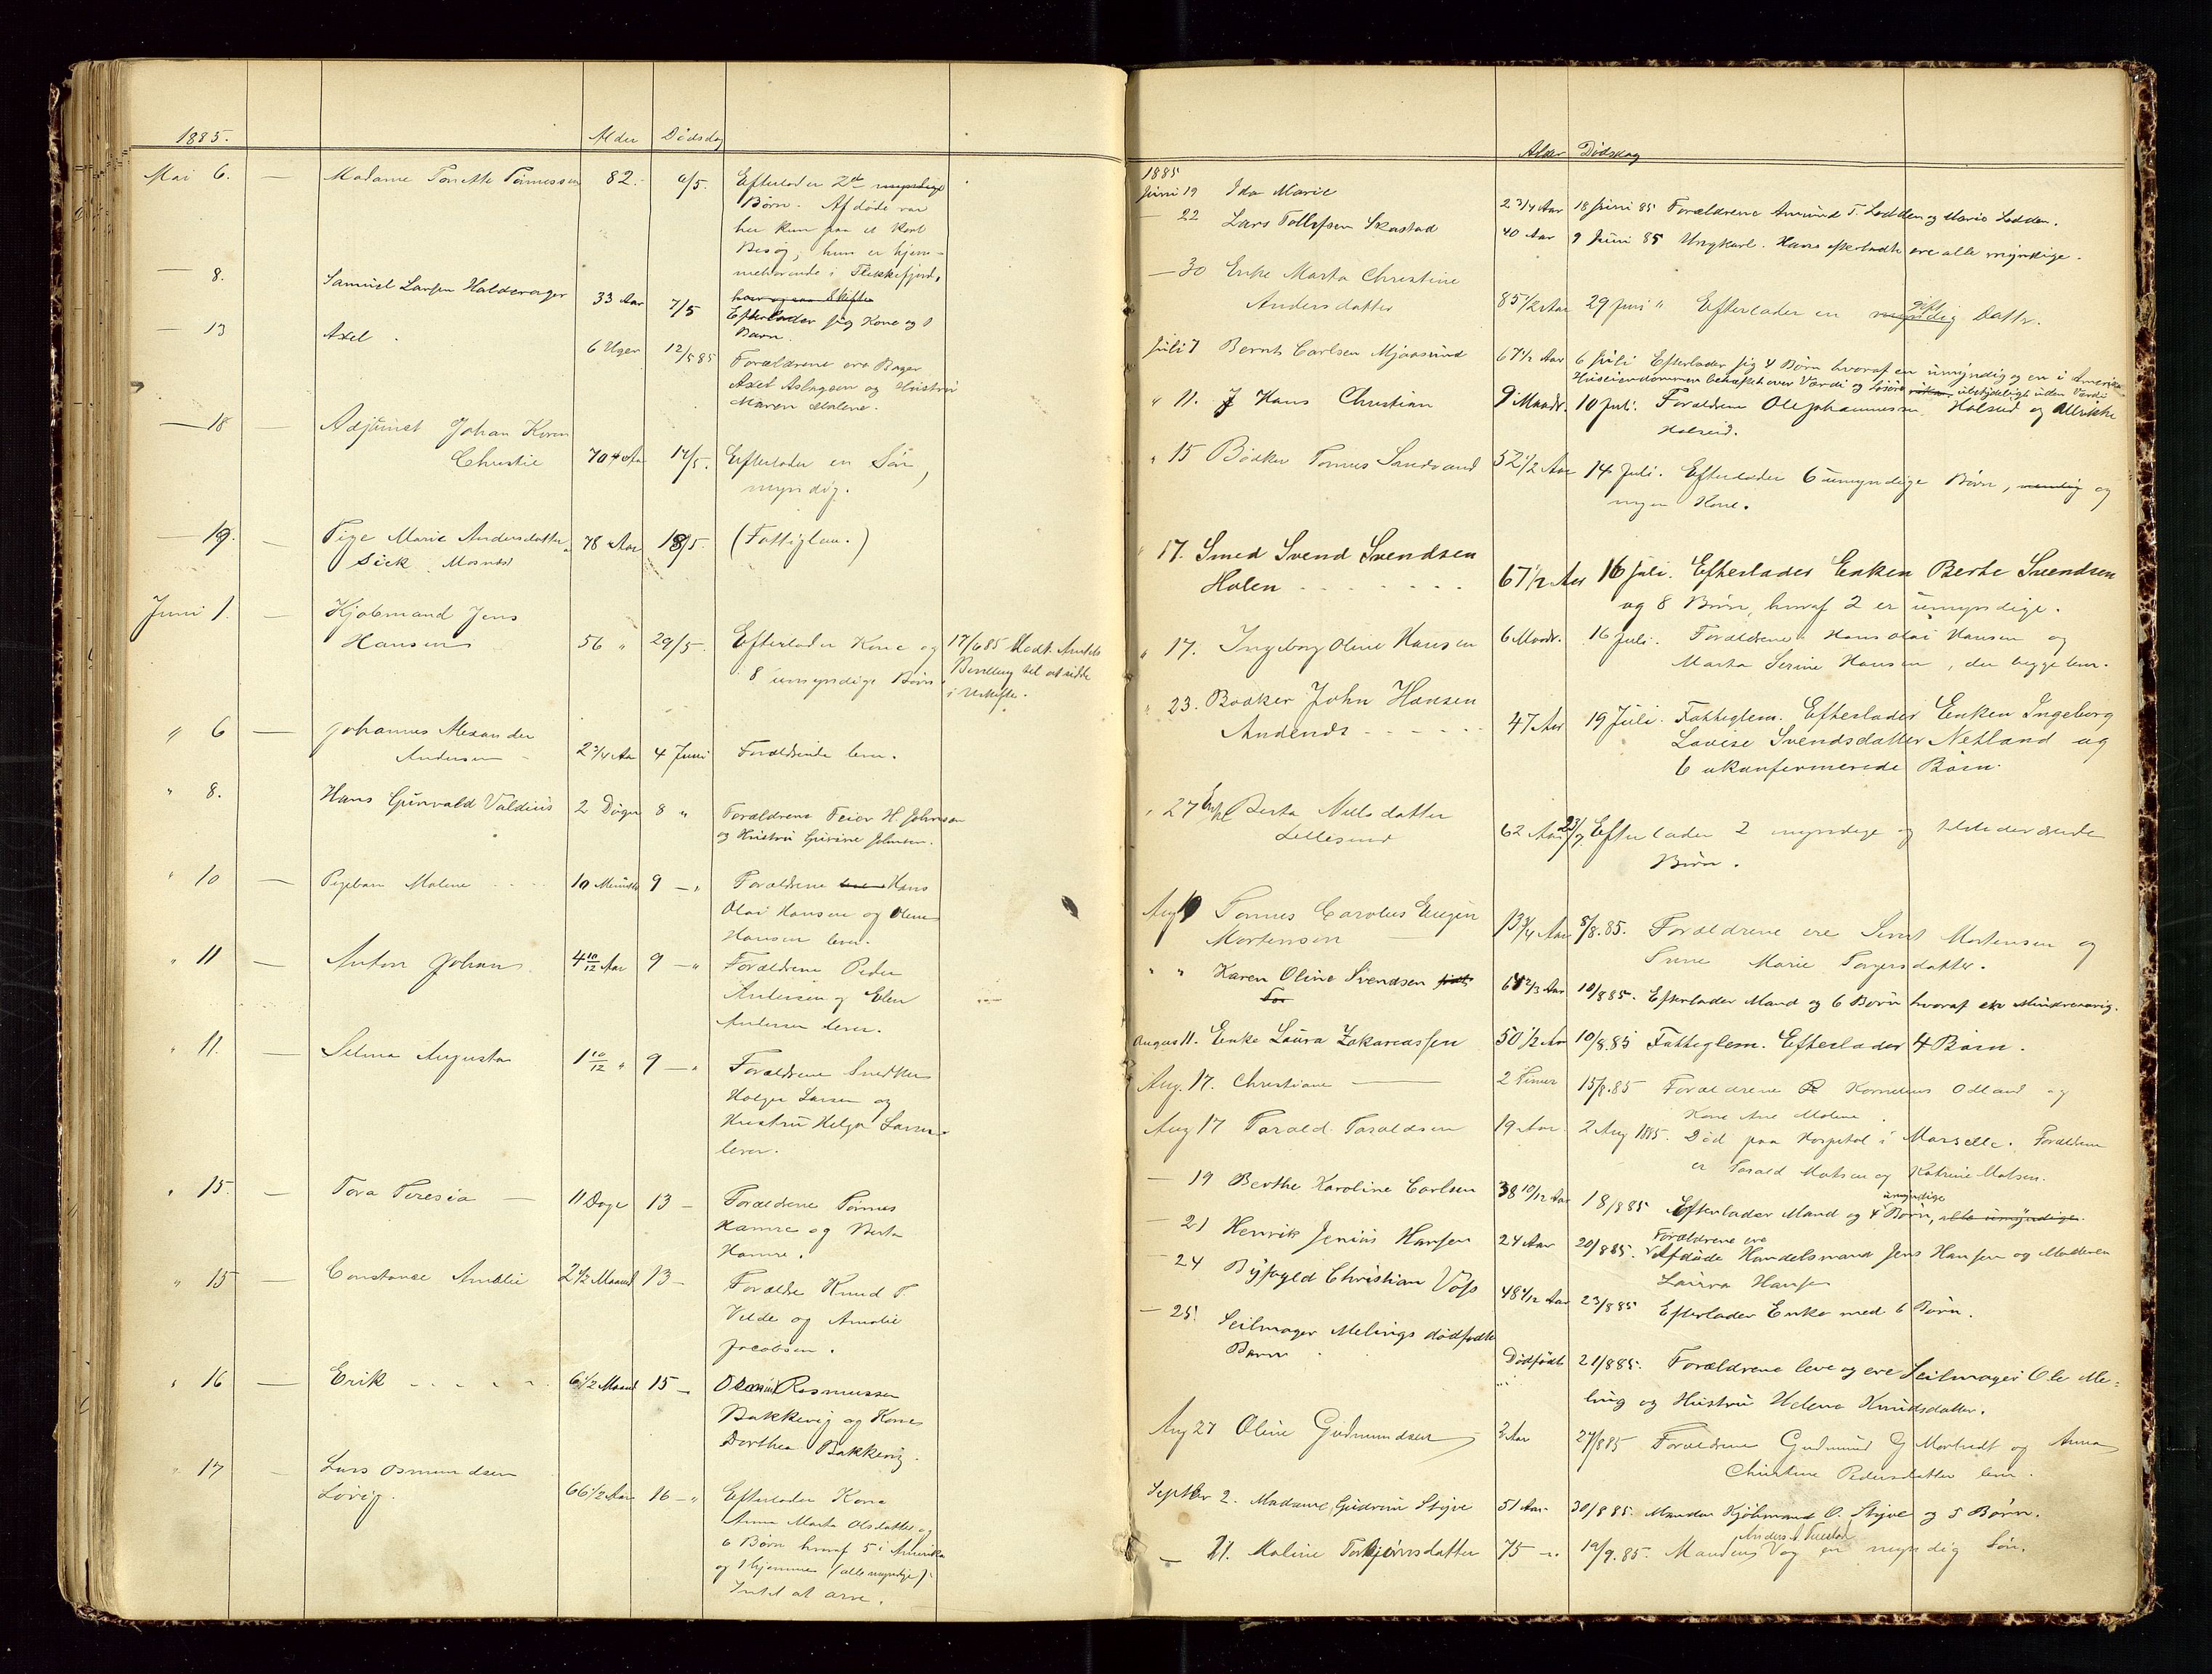 1885. Alder Dødsdag
Mai 6. — Madame Tonette Tønnessen 82. 6/5. Efterlader 2de myndige
Børn. Afdøde var
her kun paa et kort
Besøg, hun er hjem-
mehørende i Flekkefjord,
— 8. Samuel Larsen Haldorager 33 Aar 7/5
Efterlader sig Kone og 1
Barn.
— 13 Axel. 6 Uger 12/5 85 Forældrene ere Bager
Axel Aslagsen og Hustru
Maren Malene.
— 18 Adjunct Johan Koren
Christie 70 Aar 17/5. Efterlader en Søn,
myndig.
— 19. — Pige Marie Andersdatter
Sick Mosnæs 78 Aar 18/5. (Fattiglem.)
Juni 1. — Kjøbmand Jens
Hansen 56 " 29/5. Efterlader Kone og
8 umyndige Børn
17/6 85 Medt. Amtets
Bevilling til at sidde
i Uskifte.
" 6 — Johannes Alexander
Andersen 2 3/4 Aar 4 Juni Forældrende lever.
" 8. Hans Gunvald Valdius 2 Døgn 8 " Forældrene Feier H. Johnsen
og Hustru Gurine Johnsen.
" 10 — Pigebarn Malene 10 Maneder 9 — " Forældrene Hans
Olai Hansen og Oline
Hansen lever.
" 11 — Anton Johan 4 10/12 Aar 9 — " Forældrene Peder
Andersen og Elen
Andersen lever.
" 11. — Selma Augusta 1 10/12 " 9 — " Forældrene Snedker
Holger Larsen og
Hustru Helga Larsen
lever.
" 15. — Tora Teresia — 11 Dage 13 — Forældrene Tønnes
Hamre og Berta
Hamre.
" 15 — Constance Amalie 2 1/2 Maaned 13 — Forældre Knud T.
Velde og Amalie
Jacobsen.
" 16 — Erik 6 1/2 Maaned 15 — Rasmussen
Bakkevig og Kone
Dorthea Bakkevig.
" 17 — Lars Osmundsen
Lovig. 66 1/2 Aar 16 — " Efterlader Kone
Anna Marta Olsdatter og
6 Børn hvoraf 5 i Amerika
og 1 hjemme (alle myndige).
Intet at arve.
Alder Dødsdag
1885
Juni 19 Ida Marie 2 3/4 Aar 18 Juni 85 Forældrene Amund T. Lodden og Marie Lodden.
— 22 Lars Tollefsen Skastad 40 Aar 9 Juni 85 Ungkarl. Hans efterladte ere alle myndige.
— 30 Enke Marta Christine
Andersdatter 85 1/2 Aar 29 Juni " Efterlader en gift Datter.
Juli 7 Bernt Carlsen Mjaasund 67 1/2 Aar 6 Juli Efterlader sig 4 Børn hvoraf en umyndig og en i Amerika
Huseiendommen behæftet over Værdi og Løsøre ubetydeligt uden Værdi
" 11. Hans Christian 9 Maaneder. 10 Juli. Forældrene Ole Johannessen Holseid og Allrikke
Holseid.
" 15 Bødker Tønnes Sandvand 52 1/2 Aar 14 Juli. Efterlader 6 umyndige Børn, og
ingen Kone.
" 17. Smed Svend Svendsen
Holen 67 1/2 Aar 16 Juli. Efterlader Enken Berte Svendsen
og 8 Børn, hvoraf 2 er umyndige.
" 17. Ingeborg Oline Hansen 6 Maaneder. 16 Juli. Forældrene Hans Olai Hansen og
Marta Serine Hansen, der begge lever.
" 23. Bødker John Hansen
Andenes 47 Aar 19 Juli. Fattiglem. Efterlader Enken Ingeborg
Lovise Svendsdatter Netland og
6 ukonfirmerede Børn.
" 27 Enke Berta Nielsdatter
Lillesund 62 Aar 23/7. Efterlader 2 myndige og tilstedeværende
Børn.
Aug 10 Tønnes Carolus Eugen
Mortensen — 13 3/4 Aar 8/8.85. Forældrene ere Mortensen og
Marie Torgersdatter.
" " Karen Oline Svendsen 64 2/3 Aar 10/8 85. Efterlader Mand og 6 Børn hvoraf en Mindreaarig.
August 11. Enke Laura Zakariassen 50 1/2 Aar 10/8.85 Fattiglem. Efterlader 4 Børn.
Aug. 17. Christiane — 2 Timer 15/8.85 Forældrene Kornelius Odland og
Kone Ane Malene.
Aug 17 Torald Toraldsen 19 Aar 2 Aug 1885. Død paa Hospital i Marseille. Forældrene
er Torald Matsen og Katrine Matsen.
— 19 Berthe Karoline Carlsen 38 10/12 Aar 18/8 85 Efterlader Mand og 4 umyndige Børn, alle umyndige.
— 21 Henrik Jenius Hansen 24 Aar 20/8 85. Forældrene ere
Afdøde Handelsmand Jens Hansen og Moderen
Laura Hansen
— 24 Byfoged Christian Voss 48 4/12 Aar 23/8 85 Efterlader Enke med 6 Børn.
— 25. Seilmager Melings dødfødte
Barn. Dødfødt 21/8 85. Forældrene leve og ere Seilmager Ole Me-
ling og Hustru Helene Knudsdatter.
Aug 27 Oline Gudmundsen 2 Aar 27/8 85 Forældrene Gudmund G. og Anna
Christine Pedersdatter lever.
Septber 2. Madame Gudrun Stijve 51 Aar 30/8 85. Manden Kjøbmand O. Stijve og 5 Børn.
— 21. Maline Torbjørnsdatter 75 — " 19/9.85. Manden og en myndig Søn.